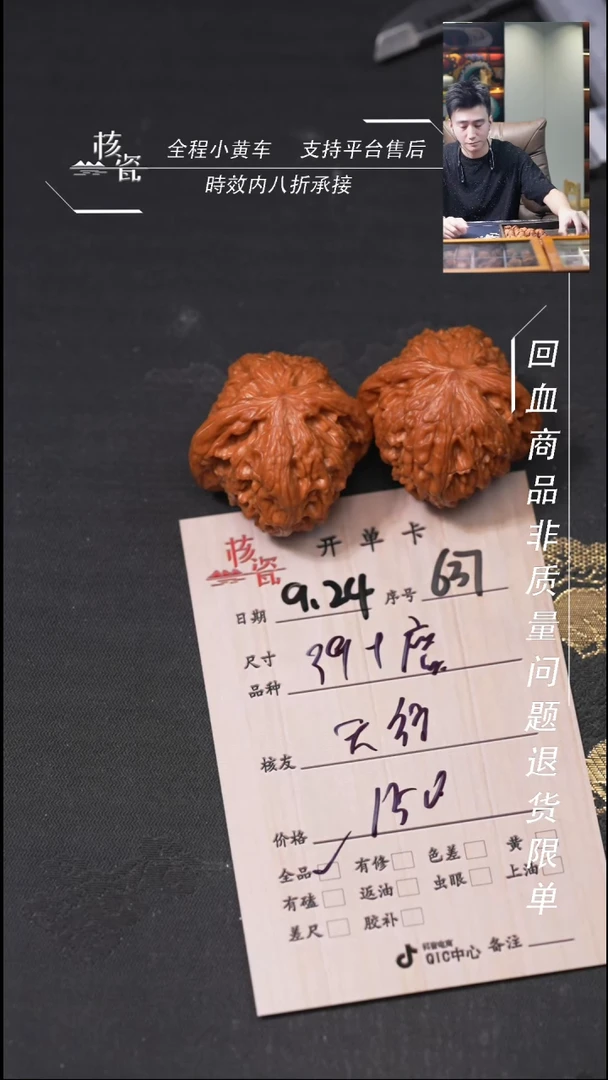 核瓷
全程小黄车 支持平台售后
時效内八折承接
回血商品非质量问题退货限单
核瓷 开单卡
日期 9.24 序号 637
尺寸 39+
品种
核友 天
价格 150
全品 有修 色差 黄
有磕 返油 虫眼 上油
差尺 胶补
抖音电商
QIC中心 备注